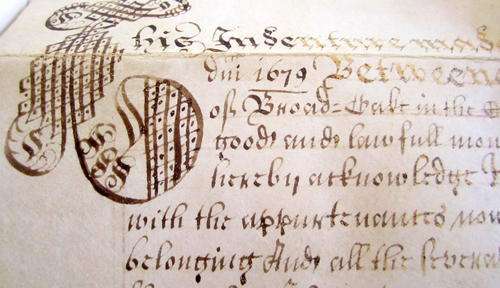 This Indenture mad
dni 1679 Between
of Broad=Oake in the
good and lawfull mon
hereby acknowledge
with the appurtenances now
belonging And all the severa